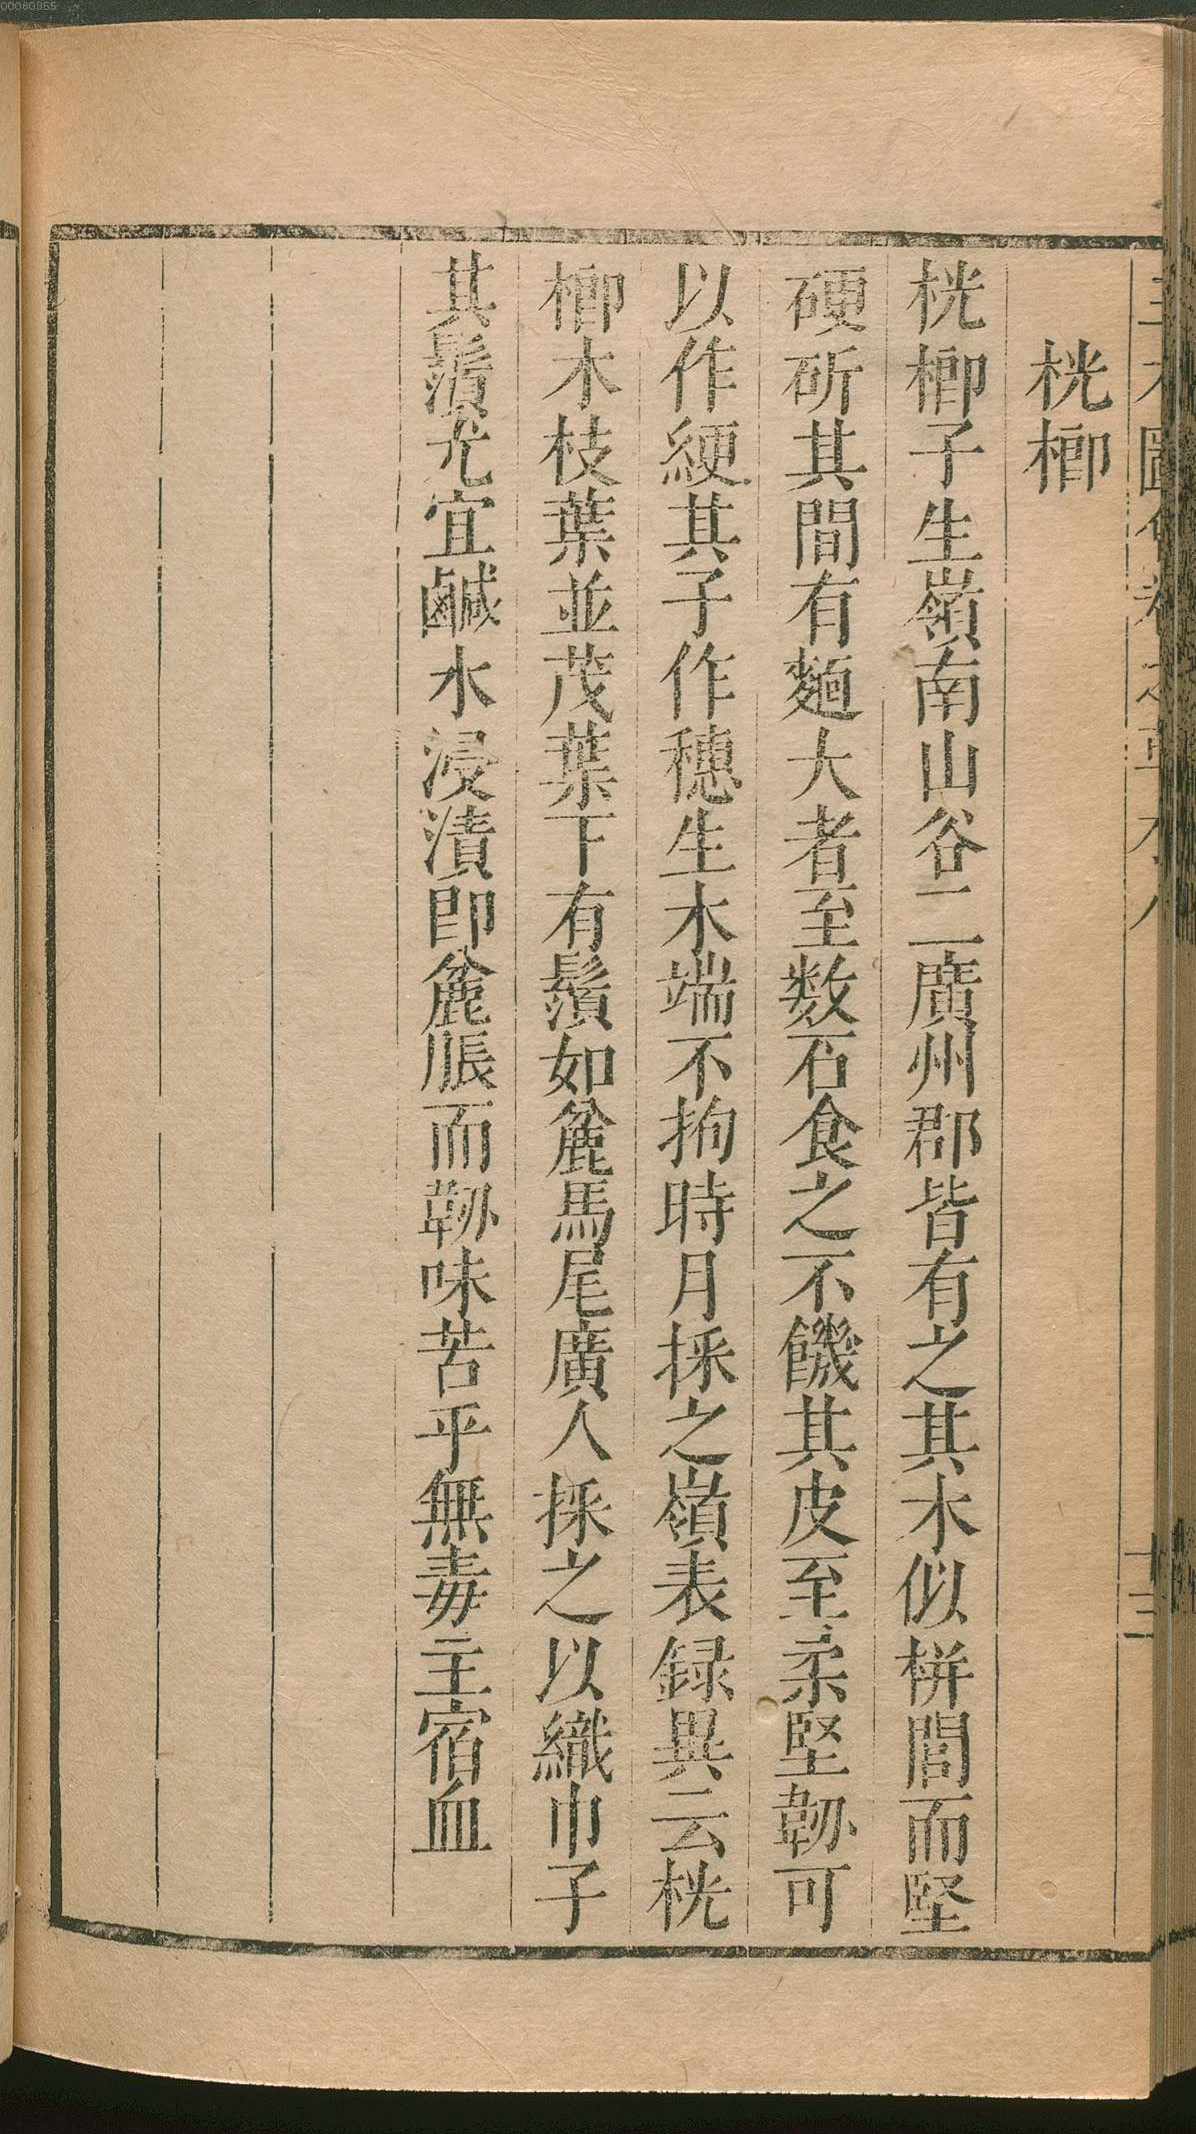 桄榔
桄榔子生嶺南山谷二廣州郡皆有之其木似栟閭而堅
硬斫其間有麵大者至数石食之不饑其皮至柔堅韌可
以作綆其子作穗生木端不拘時月採之嶺表録異云桄
榔木枝葉並茂葉下有鬚如麄馬尾廣人採之以織巾子
其鬚尤宜鹹水浸漬即麄脹而韌味苦平無毒主宿血
十三
00060355